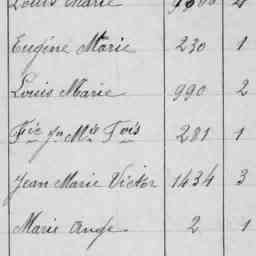 Louis Marie
Eugène Marie 230 1
Louis Marie 990 2
Fic Jn Mie Fois 281 1
Jean Marie Victor 1434 3
Marie Ange 2 1